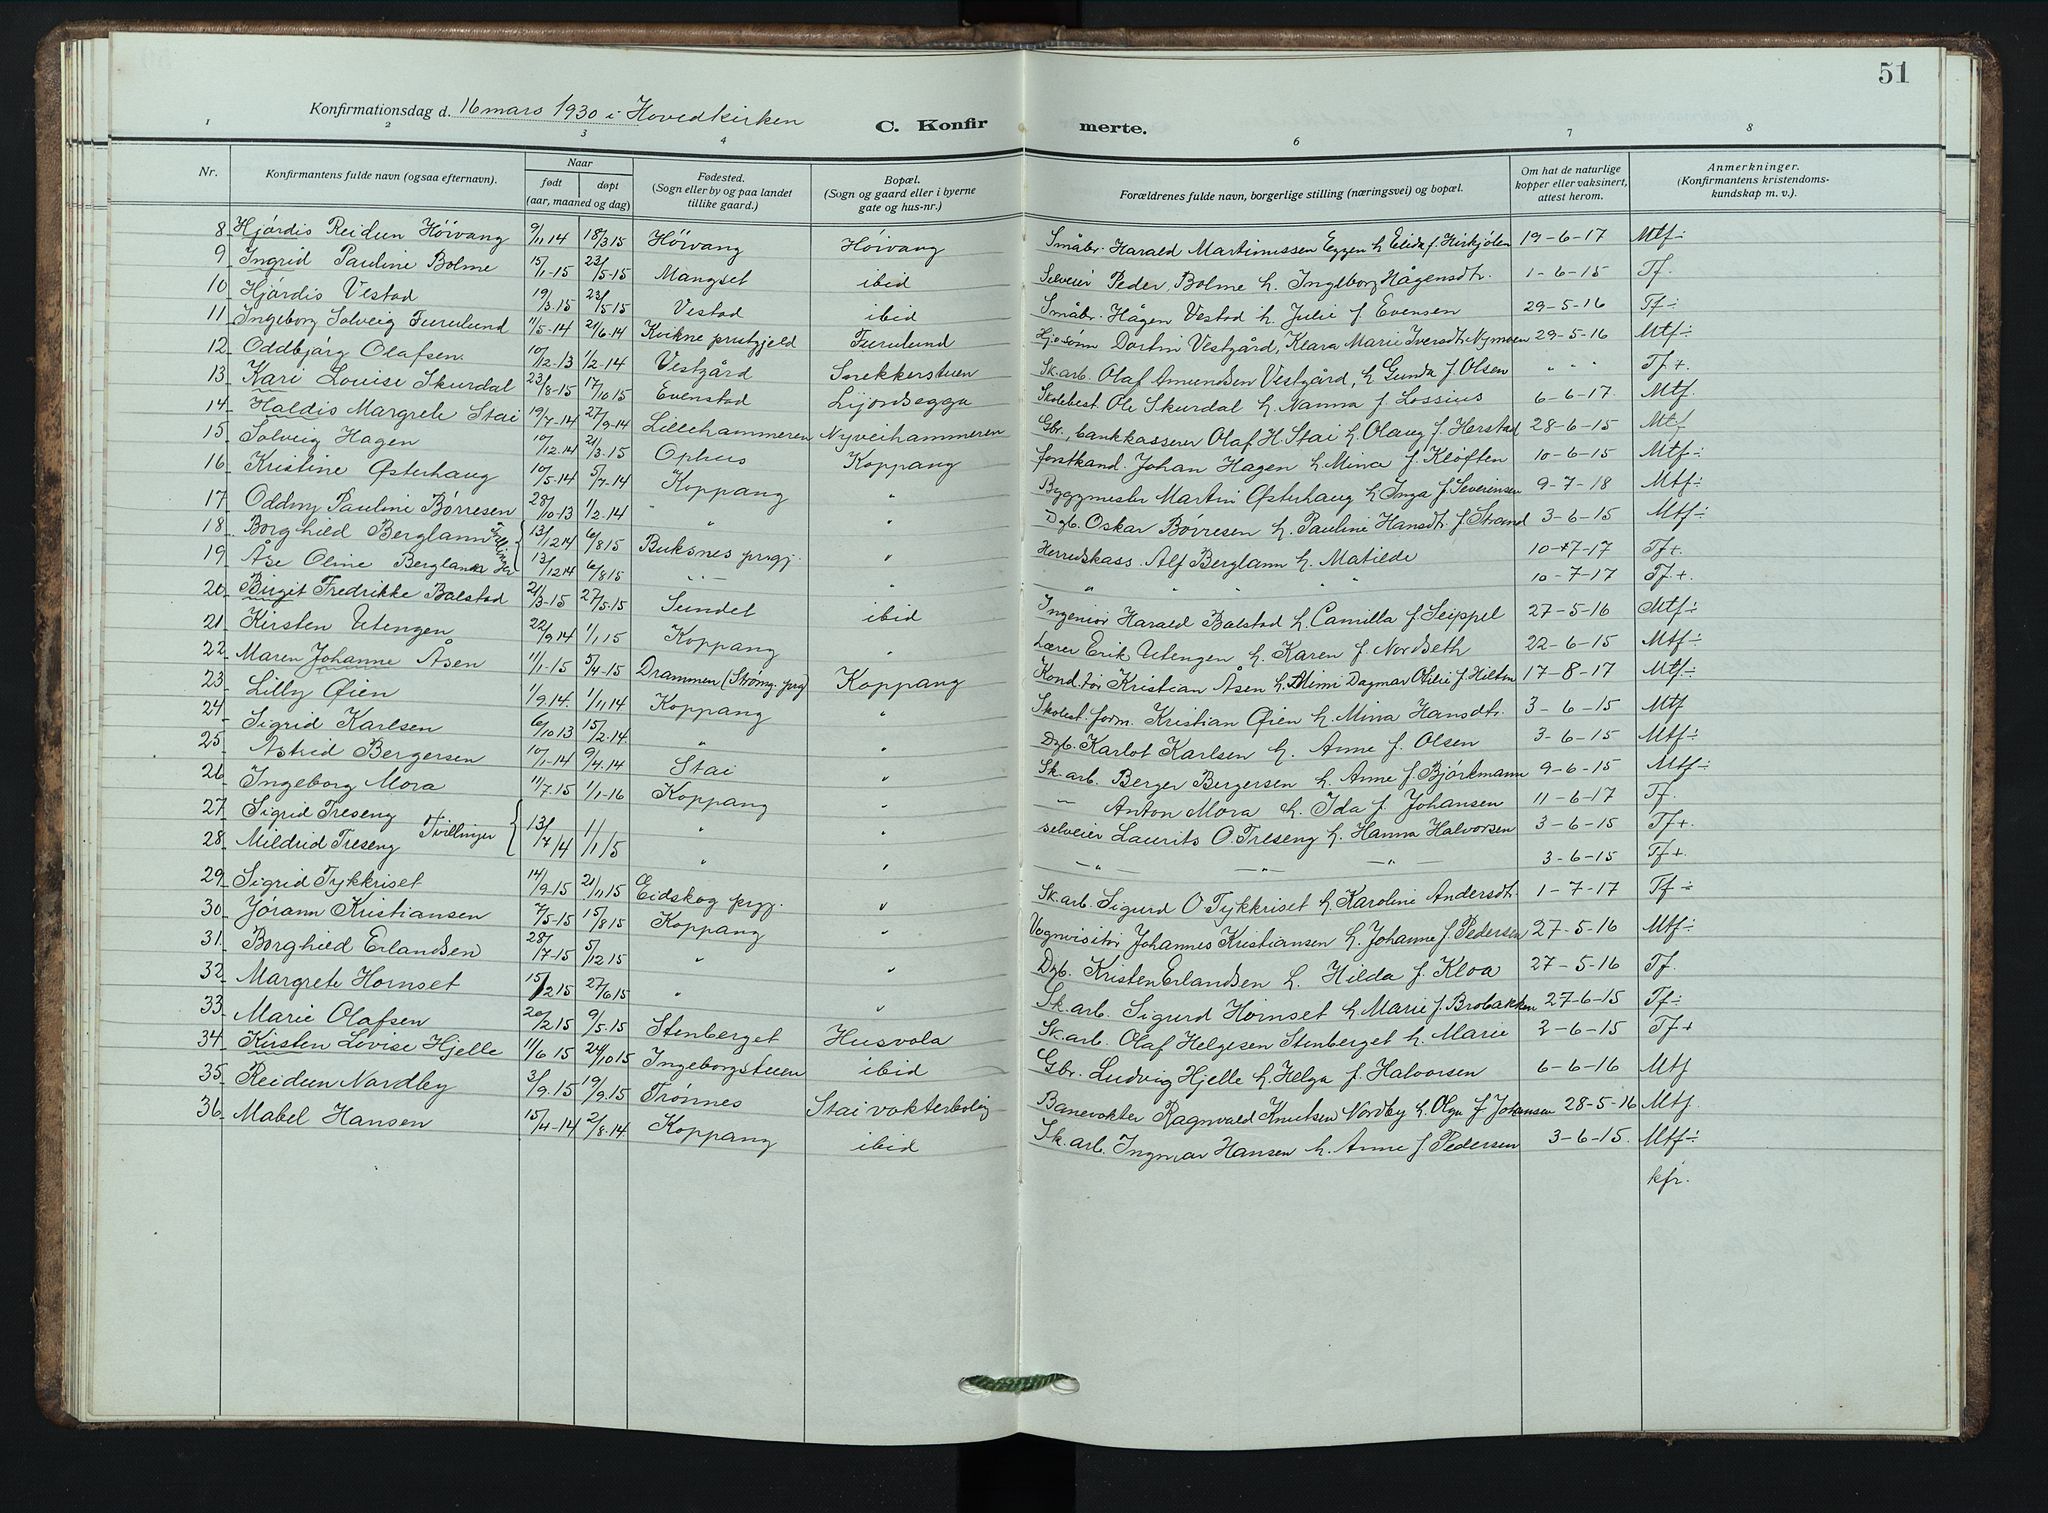 51
Konfirmationsdag d. 16 mars 1930 i Hovedkirken
C. Konfirmerte.
1 2 3 4 6 7 8
Nr. Konfirmantens fulde navn (ogsaa efternavn). Naar født døpt (aar, maaned og dag) Fødested. (Sogn eller by og paa landet tillike gaard.) Bopæl. (Sogn og gaard eller i byerne gate og hus-nr.) Forældrenes fulde navn, borgerlige stilling (næringsvei) og bopæl. Om hat de naturlige kopper eller vaksinert, attest herom. Anmerkninger. (Konfirmantens kristendomskundskap m. v.).
8 Hjørdis Reidun Høivang 9/11 14 18/3 15 Høivang Høivang Småbr. Harald Martinussen Eggen h. Elida f. Kirkjølen 19-6-17 Mtf÷
9 Ingrid Pauline Bolme 15/1-15 23/5-15 Mangset ibid Selveier Peder Bolme h. Ingeborg Hågensdtr. 1-6-15 Tf.
10 Hjørdis Vestad 19/3.15 23/5-15 Vestad ibid Småbr. Hågen Vestad h. Julie f Evensen 29-5-16 Tf÷
11 Ingeborg Solveig Furulund 11/5-14 21/6.14 Kvikne prestgjeld Furulund Hj.sønn Dortin Vestgård, Klara Marie Iversdt. Nymoen 29-5-16 Mtf÷
12 Oddbjørg Olafsen 10/12-13 1/2-14 Vestgård Snekkerstuen Sk.arb. Olaf Amundsen Vestgård, h Gunda f. Olsen " " Tf+
13 Kari Louise Skurdal 23/8-15 17/10 15 Evenstad Skolebest. Ole Skurdal h. Nanna f. Lossius 6-6-17. Mtf.
14 Haldis Margrete Stai 19/7-14 27/9-14 Lillehammeren Nyveihammeren Gbr., bankkasserer Olaf H. Stai h. Olaug f. Harstad 28-6-15 Mtf
15 Solveig Hagen 10/12.14 21/3.15 Ophus Koppang forstkand. Johan Hagen h. Mina f. Kløften 10-6-15 Mtf÷
16 Kristine Østerhaug 10/5-14 5/7-14 Koppang " Byggmester Martin Østerhaug h Inga f. Severinsen 9-7-18 Mtf÷
17 Oddny Pauline Børresen 28/10-13 1/2-14 " " Dgb. Oskar Børresen h. Pauline Hansdt. f. Strand 3-6-15 Mtf÷
18 Borghild Berglann Tvillinger 13/12 14 6/8 15 Buksnes prgj. " Herredskass. Alf Berglann h. Matilde 10-7-17 Tf+
19 Åse Oline Berglann 13/12 14 6/8 15 " " " " 10-7-17 Tf+.
20 Birgit Fredrikke Balstad 21/3-15 27/5-15 Sundet ibid Ingeniør Harald Balstad h. Camilla f Seippel 27-5-16 Mtf÷
21 Kirsten Utengen 22/9 14 1/1 15 Koppang " Lærer Erik Utengen h. Karen f Nordseth 22-6-15 Mtf÷
22 Maren Johanne Åsen 11/1-15 5/4-15 Drammen (Strømg. prg) Koppang Konditor Kristian Åsen h. Mimi Dagmar Otilie f. Hilton 17-8-17 Mtf÷
23 Lilly Øien 1/9 14. 1/11 14 Koppang " Skolest. form. Kristian Øien h. Mina Hansdtr. 3-6-15 Mtf
24 Sigrid Karlsen 6/10 13 15/2-14. " " Dgb. Karlot Karlsen h. Anne f. Olsen 3-6-15 Mtf÷
25 Astrid Bergersen 10/1-14 9/4.14 Stai " Sk.arb. Berger Bergersen h Anne f. Bjørkmann 9-6-15 Mtf÷
26 Ingeborg Mora 11/7.15 1/1-16 Koppang " " Anton Mora h. Ida f. Johansen 11-6-17 Tf.
27 Sigrid Treseng Tvillinger 13/7 14 1/1 15 " " selveier Laurits O. Treseng h. Hanna Halvorsen 3-6-15 Tf+.
28 Mildrid Treseng " " " " 3-6-15 Tf+.
29 Sigrid Tykkriset 14/9-15 21/11 15 Eidskog prgj. " Sk.arb. Sigurd O Tykkriset h. Karoline Andersdt. 1-7-17 Tf÷
30 Jørann Kristiansen 7/5-15 15/8 15 Koppang " Vognvisitør Johannes Kristiansen h. Johanne f. Pedersen 27-5-16 Mtf÷
31 Borghild Erlandsen 28/7-15 5/12 15 " " Dgb. Kristen Erlandsen h. Hilda f. Kloa 27-5-16 Tf.
32 Margrete Hornset 15/2 15 27/6 15 " " Sk.arb. Sigurd Hornset h Marie f. Brobakken 27-6-15 Tf÷
33 Marie Olafsen 20/2 15 9/5-15 Stenberget Husvola Sk.arb. Olaf Helgesen Stenberget h. Marie 2-6-15 Tf+
34 Kirsten Lovise Hjelle 11/6 15 24/10 15 Ingeborgstuen ibid Gbr. Ludvig Hjelle h. Helga f. Halvorsen 6-6-16 Mtf
35 Reidun Nordby 3/9.15 19/9.15 Trønnes Stai vokterbolig Banevokter Ragnvald Knutsen Nordby h. Olga f Johansen 28-5-16 Mtf.
36 Mabel Hansen 15/4-14 2/8-14 Koppang ibid Sk.arb. Ingmar Hansen h. Anne f Pedersen 3-6-15. Mtf÷
kfr.